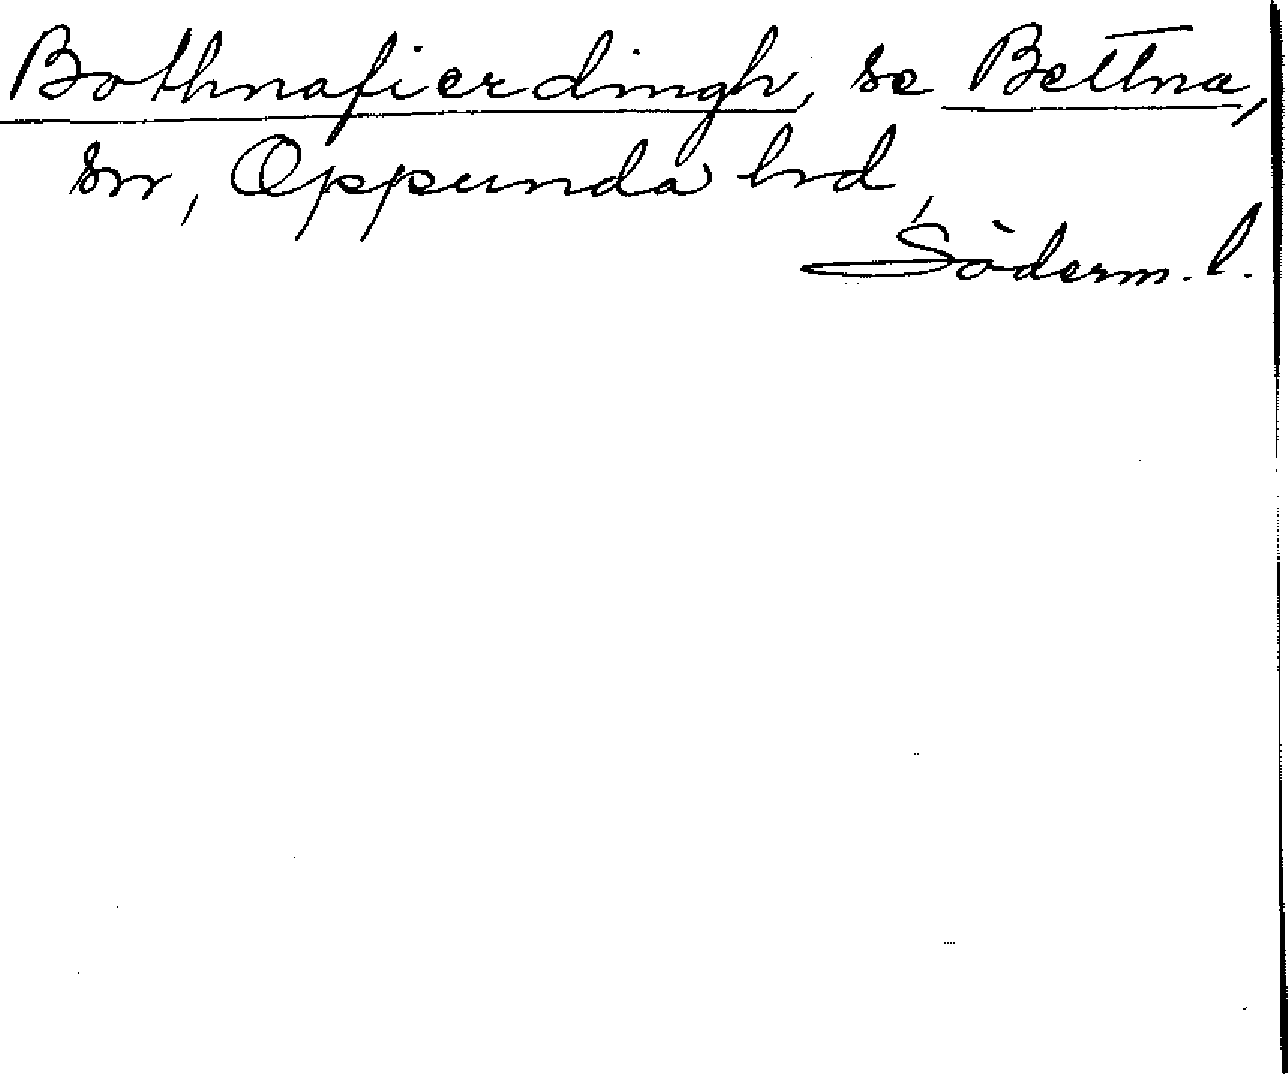 Bothnafierdingh, se Bettna,
sn, Oppunda hrd,
Söderm. l.